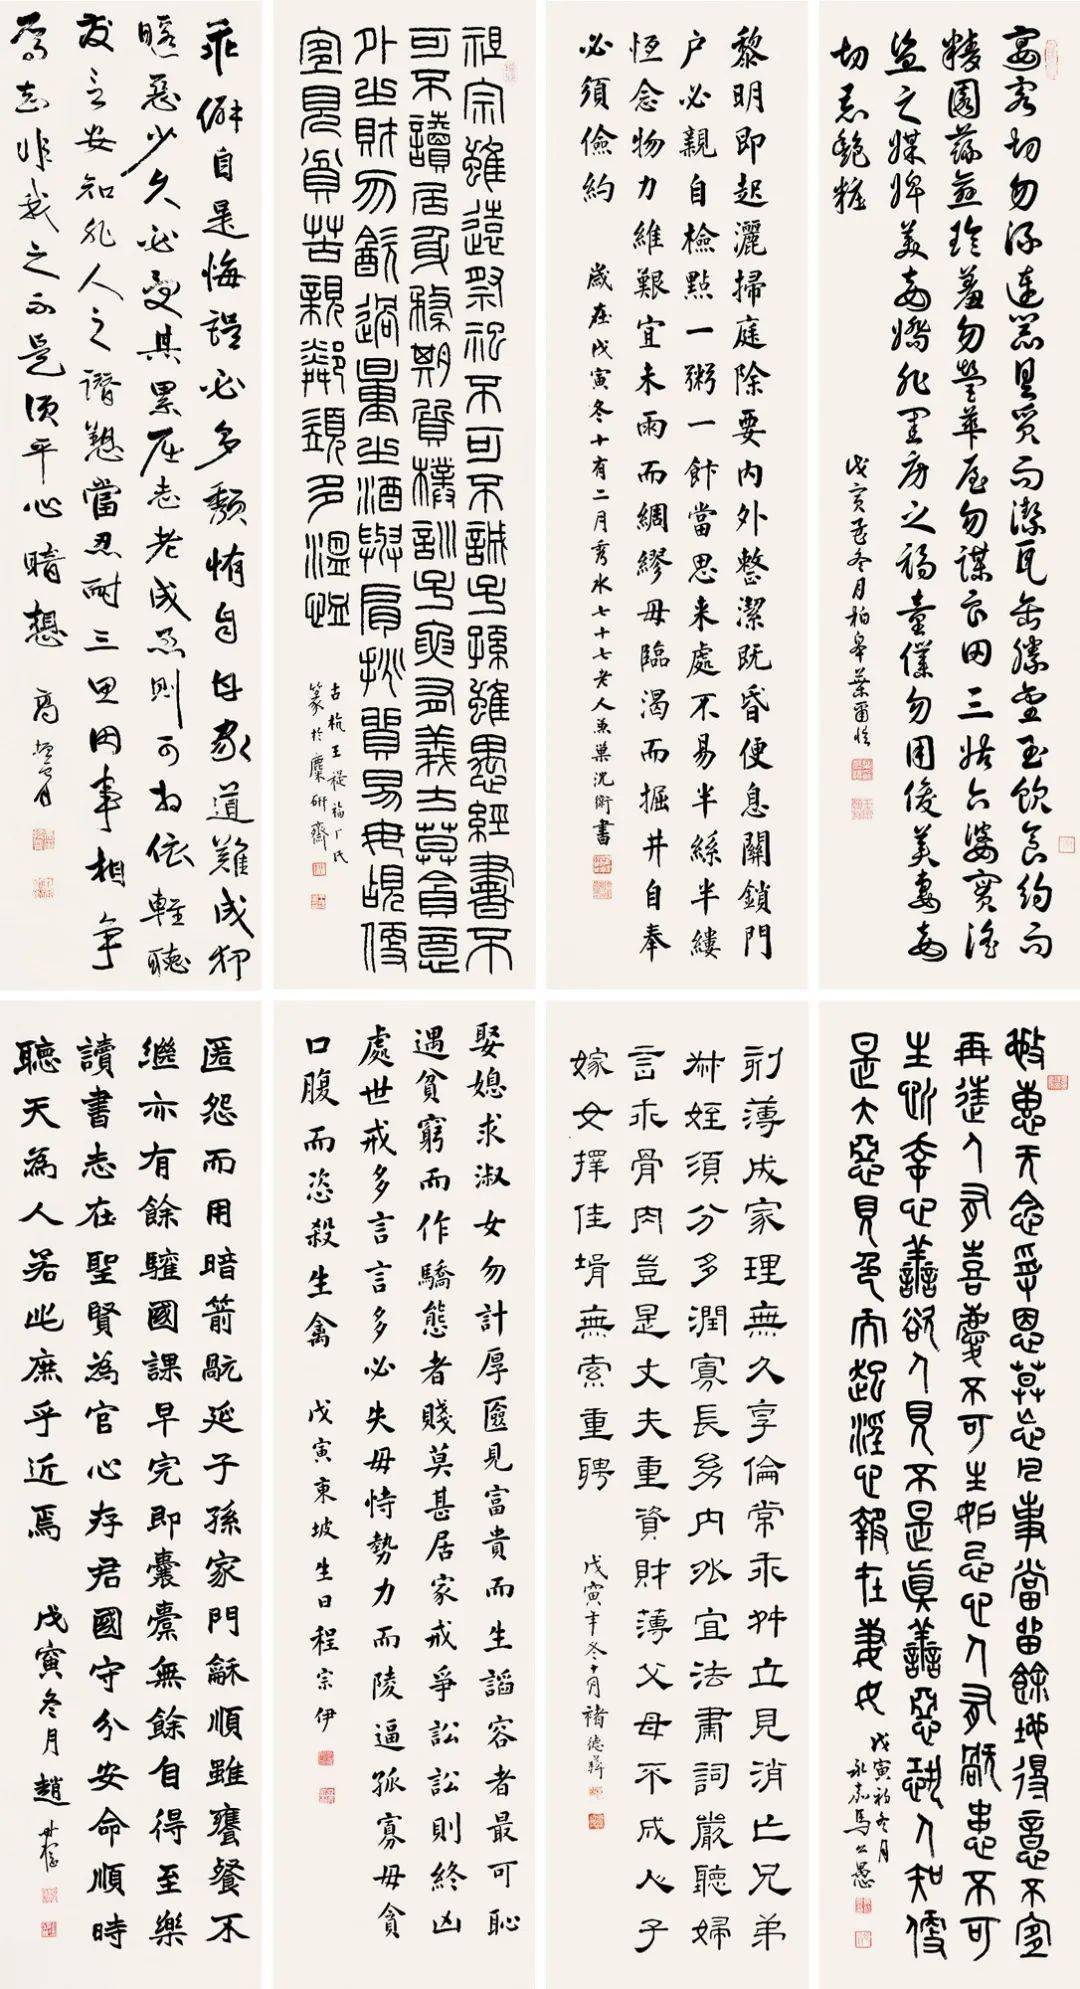 宴客切勿流連器具質而潔瓦缶勝金玉飲食約而
精園蔬愈珍羞勿營華屋勿謀良田三姑六婆實淫
盜之媒婢美妾嬌非閨房之福童僕勿用俊美妻妾
切忌艷粧
戊寅孟冬月柏皋葉爾愷
黎明即起灑掃庭除要內外整潔既昏便息關鎖門
户必親自檢點一粥一飰當思来處不易半絲半縷
恆念物力維艱宜未雨而綢繆毋臨渴而掘井自奉
必須儉約
歲在戊寅冬十有二月秀水七十七老人兼巢沈衛書
祖宗雖遠祭祀不可不誠子孫雖愚經書不
可不讀居身務期質樸訓子要有義方莫貪意
外之財勿飲過量之酒與肩挑貿易毋占便
宜見貧苦親鄰須多溫恤
古杭王禔福厂氏
篆於麋研齋
乖僻自是悔誤必多頹惰自甘家道難成狎
暱惡少久必受其累屈志老成急則可相依輕聽
發言安知非人之譖愬當忍耐三思因事相爭
焉知非我之不是須平心暗想
高振霄
施惠无念受恩莫忘凡事當留餘地得意不宜
再往人有喜慶不可生妒忌心人有禍患不可
生欣幸心善欲人見不是真善惡恐人知便
是大惡見色而起淫心報在妻女
戊寅初冬月
永嘉馬公愚
刻薄成家理無久享倫常乖舛立見消亡兄弟
叔姪須分多潤寡長幼內外宜法肅詞嚴聽婦
言乖骨肉豈是丈夫重資財薄父母不成人子
嫁女擇佳壻無索重聘
戊寅年冬十月褚德彝
娶媳求淑女勿計厚匳見富貴而生諂容者最可恥
遇貧窮而作驕態者賤莫甚居家戒爭訟訟則終凶
處世戒多言言多必失毋恃勢力而陵逼孤寡毋貪
口腹而恣殺生禽
戊寅東坡生日程宗伊
匿怨而用暗箭禍延子孫家門龢順雖饔餐不
繼亦有餘驩國課早完即囊橐無餘自得至樂
讀書志在聖賢為官心存君國守分安命順時
聽天為人若此庶乎近焉
戊寅冬月趙叔孺